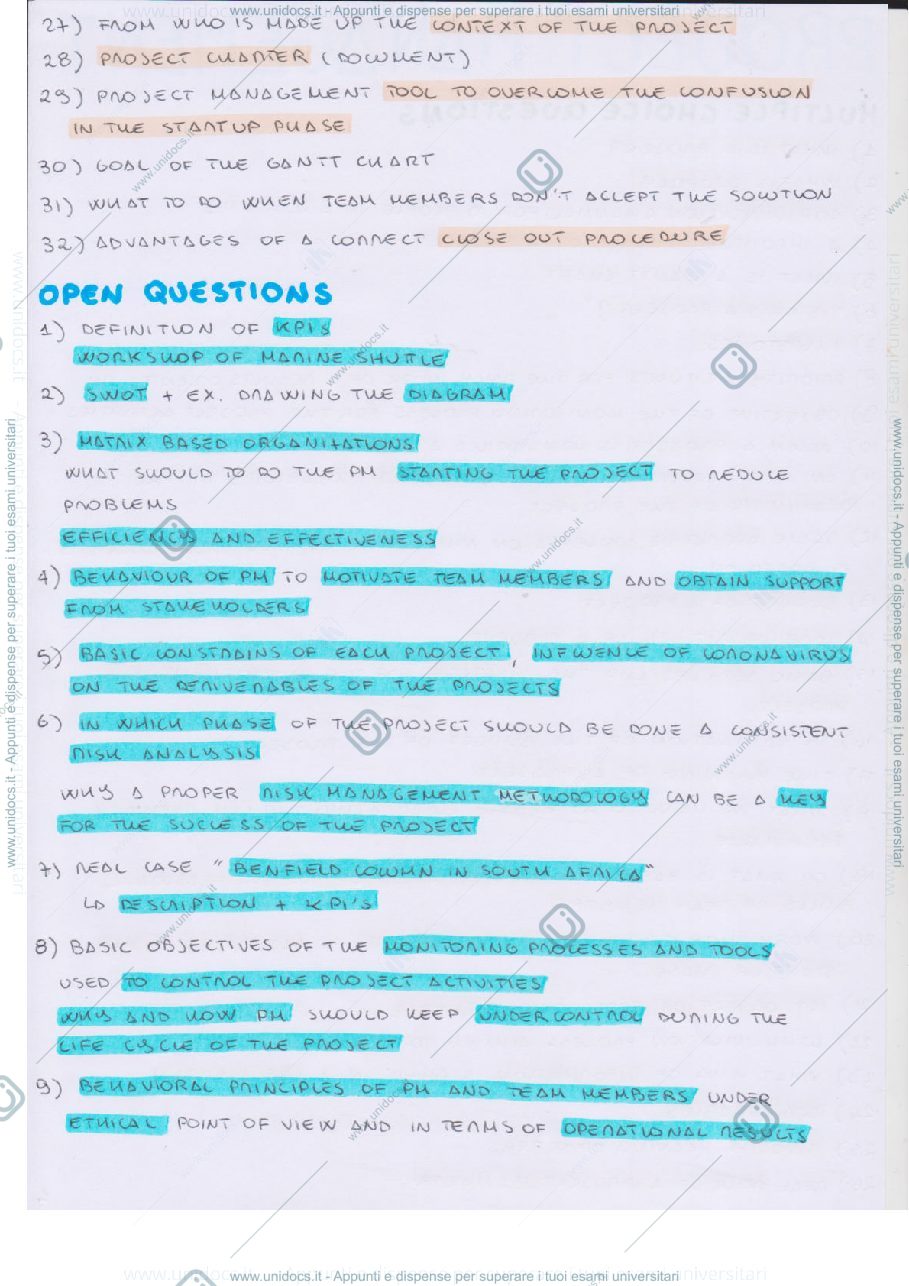 www.unidocs.it - Appunti e dispense per superare i tuoi esami universitari
27) FROM WHO IS MADE UP THE CONTEXT OF THE PROJECT
28) PROJECT CHARTER (DOCUMENT)
29) PROJECT MANAGEMENT TOOL TO OVERCOME THE CONFUSION
IN THE STARTUP PHASE
30) GOAL OF THE GANTT CHART
31) WHAT TO DO WHEN TEAM MEMBERS DON'T ACCEPT THE SOLUTION
32) ADVANTAGES OF A CORRECT CLOSE OUT PROCEDURE
OPEN QUESTIONS
1) DEFINITION OF KPIs
WORKSHOP OF MARINE SHUTTLE
2) SWOT + EX. DRAWING THE DIAGRAM
3) MATRIX BASED ORGANIZATIONS
WHAT SHOULD TO DO THE PM STARTING THE PROJECT TO REDUCE
PROBLEMS
EFFICIENCY AND EFFECTIVENESS
4) BEHAVIOUR OF PM TO MOTIVATE TEAM MEMBERS AND OBTAIN SUPPORT
FROM STAKEHOLDERS
5) BASIC CONSTRAINS OF EACH PROJECT, INFLUENCE OF CORONAVIRUS
ON THE DERIVERABLES OF THE PROJECTS
6) IN WHICH PHASE OF THE PROJECT SHOULD BE DONE A CONSISTENT
RISK ANALYSIS
WHY A PROPER RISK MANAGEMENT METHODOLOGY CAN BE A KEY
FOR THE SUCCESS OF THE PROJECT
7) REAL CASE "BENFIELD COLUMN IN SOUTH AFRICA"
↳ DESCRIPTION + KPI's
8) BASIC OBJECTIVES OF THE MONITORING PROCESSES AND TOOLS
USED TO CONTROL THE PROJECT ACTIVITIES
WHY AND HOW PM SHOULD KEEP UNDERCONTROL DURING THE
LIFE CYCLE OF THE PROJECT
9) BEHAVIORAL PRINCIPLES OF PM AND TEAM MEMBERS UNDER
ETHICAL POINT OF VIEW AND IN TERMS OF OPERATIONAL RESULTS
www.unidocs.it - Appunti e dispense per superare i tuoi esami universitari
www.unidocs.it - Appunti e dispense per superare i tuoi esami universitari
www.unidocs.it - Appunti e dispense per superare i tuoi esami universitari